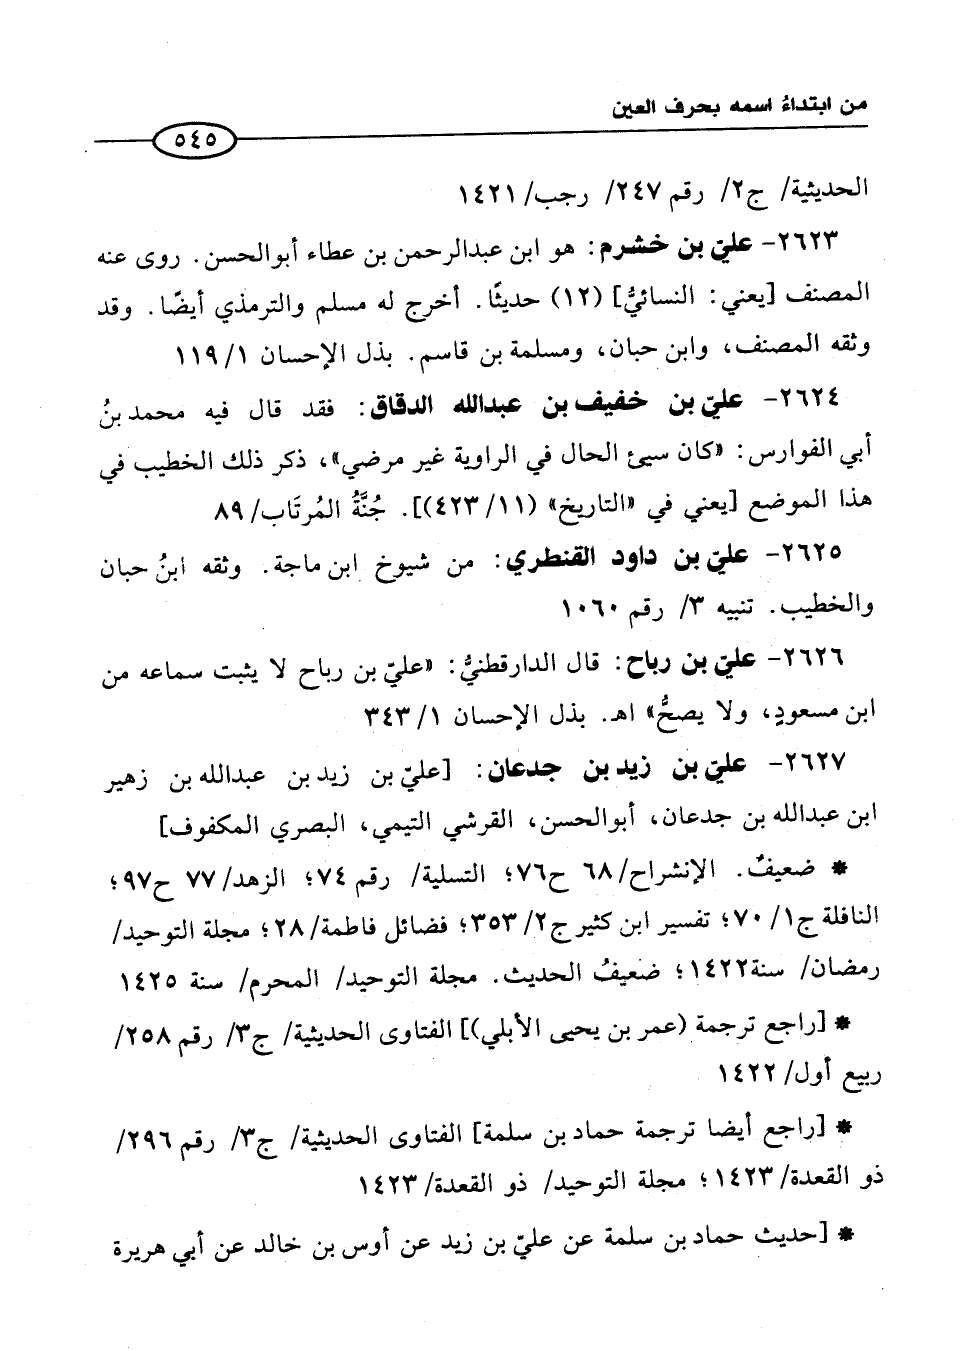 من ابتداءُ اسمه بحرف العين
٥٤٥
الحديثية/ ج٢/ رقم ٢٤٧/ رجب/ ١٤٢١
٢٦٢٣- عليّ بن خشرم: هو ابن عبدالرحمن بن عطاء أبوالحسن. روى عنه
المصنف [يعني: النسائيُّ] (١٢) حديثًا. أخرج له مسلم والترمذي أيضًا. وقد
وثقه المصنف، وابن حبان، ومسلمة بن قاسم. بذل الإحسان ١/ ١١٩
٢٦٢٤- عليّ بن خفيف بن عبدالله الدقاق: فقد قال فيه محمد بنُ
أبي الفوارس: «كان سيئ الحال في الراوية غير مرضي»، ذكر ذلك الخطيب في
هذا الموضع [يعني في «التاريخ» (١١/ ٤٢٣)]. جُنَّةُ المُرتَاب/ ٨٩
٢٦٢٥- عليّ بن داود القنطري: من شيوخ ابن ماجة. وثقه ابنُ حبان
والخطيب. تنبيه ٣/ رقم ١٠٦٠
٢٦٢٦- عليّ بن رباح: قال الدارقطنيُّ: «عليّ بن رباح لا يثبت سماعه من
ابن مسعودٍ، ولا يصحُّ» اهـ. بذل الإحسان ١/ ٣٤٣
٢٦٢٧- عليّ بن زيد بن جدعان: [عليّ بن زيد بن عبدالله بن زهير
ابن عبدالله بن جدعان، أبوالحسن، القرشي التيمي، البصري المكفوف]
* ضعيفٌ. الإنشراح/ ٦٨ ح٧٦؛ التسلية/ رقم ٧٤؛ الزهد/ ٧٧ ح٩٧؛
النافلة ج١/ ٧٠؛ تفسير ابن كثير ج٢/ ٣٥٣؛ فضائل فاطمة/ ٢٨؛ مجلة التوحيد/
رمضان/ سنة١٤٢٢؛ ضعيفُ الحديث. مجلة التوحيد/ المحرم/ سنة ١٤٢٥
* [راجع ترجمة (عمر بن يحيى الأبلي)] الفتاوى الحديثية/ ج٣/ رقم ٢٥٨/
ربيع أول/ ١٤٢٢
* [راجع أيضا ترجمة حماد بن سلمة] الفتاوى الحديثية/ ج٣/ رقم ٢٩٦/
ذو القعدة/ ١٤٢٣؛ مجلة التوحيد/ ذو القعدة/ ١٤٢٣
* [حديث حماد بن سلمة عن عليّ بن زيد عن أوس بن خالد عن أبي هريرة